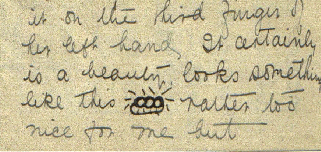 it on the third finger of
her left hand, It certainly
is a beauty, looks something
like this rather too
nice for me but